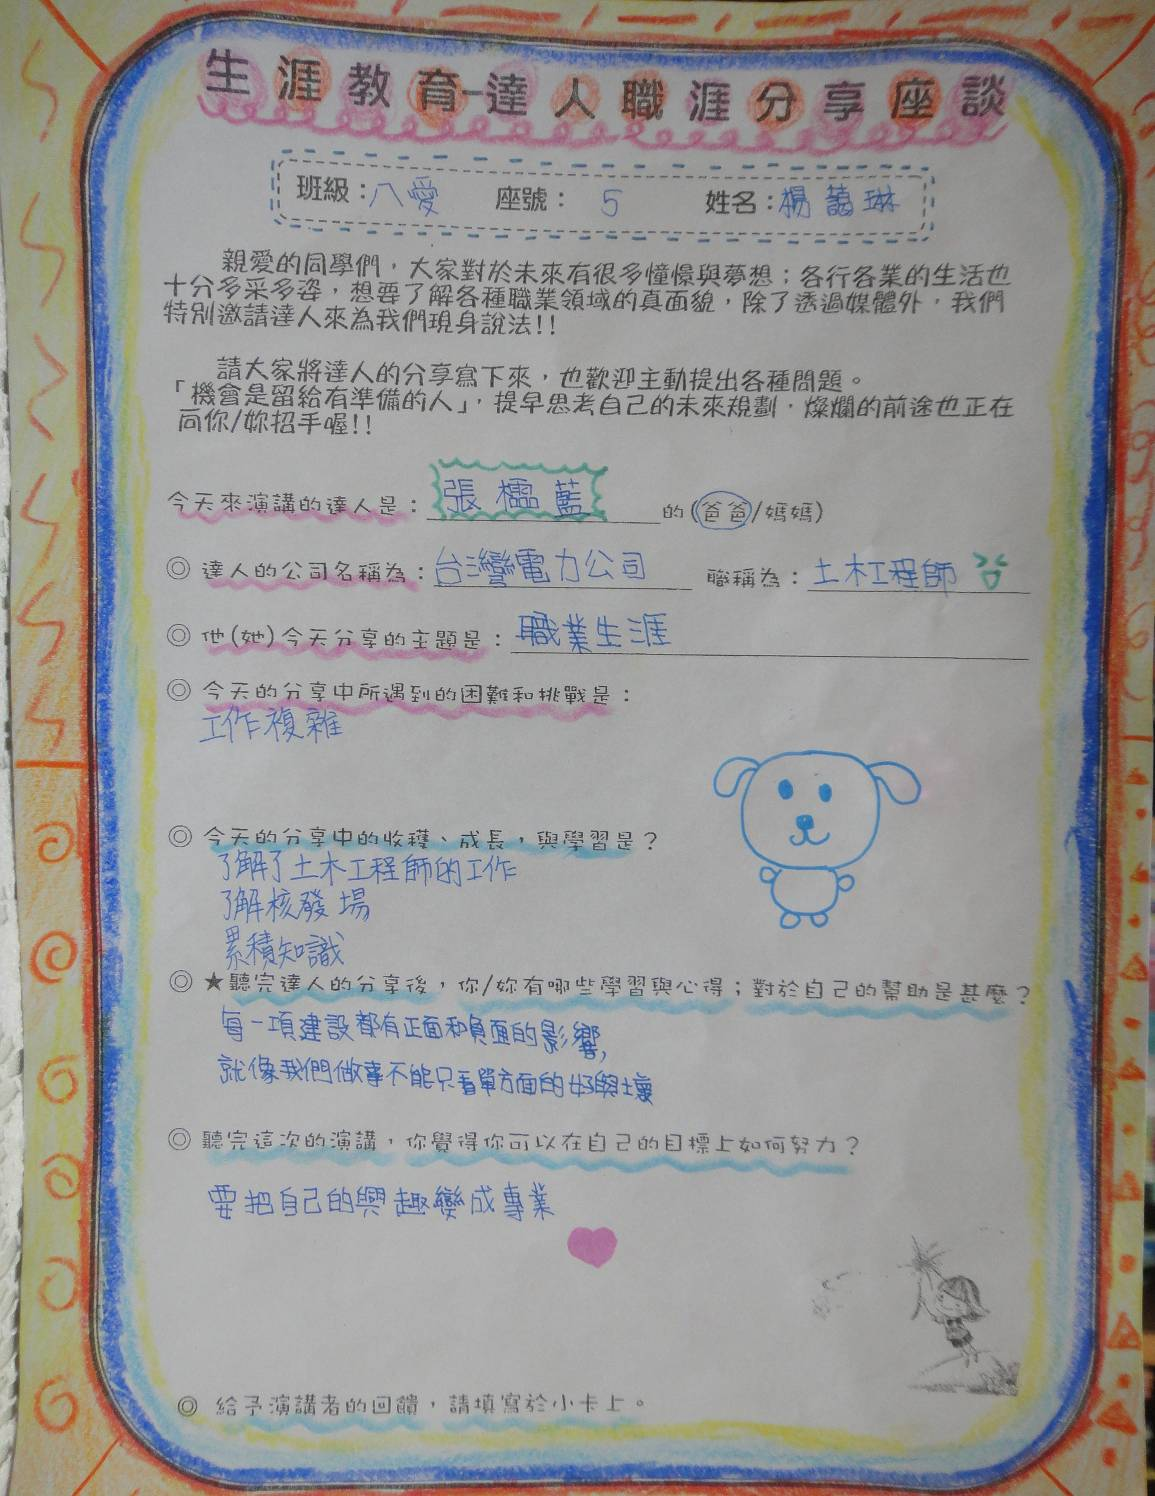 生涯教育-達人職涯分享座談
班級：八愛 座號：5 姓名：楊藹琳
親愛的同學們，大家對於未來有很多憧憬與夢想；各行各業的生活也
十分多采多姿，想要了解各種職業領域的真面貌，除了透過媒體外，我們
特別邀請達人來為我們現身說法!!
請大家將達人的分享寫下來，也歡迎主動提出各種問題。
「機會是留給有準備的人」，提早思考自己的未來規劃．燦爛的前途也正在
向你/妳招手喔!!
今天來演講的達人是：張櫺藍 的(爸爸/媽媽)
◎ 達人的公司名稱為：台灣電力公司 職稱為：土木工程師
◎ 他(她)今天分享的主題是：職業生涯
◎ 今天的分享中所遇到的困難和挑戰是：
工作複雜
◎ 今天的分享中的收穫、成長，與學習是？
了解了土木工程師的工作
了解核發場
累積知識
◎ ★聽完達人的分享後，你/妳有哪些學習與心得；對於自己的幫助是甚麼？
每一項建設都有正面和負面的影響,
就像我們做事不能只看單方面的好與壞
◎ 聽完這次的演講，你覺得你可以在自己的目標上如何努力？
要把自己的興趣變成專業
◎ 給予演講者的回饋，請填寫於小卡上。